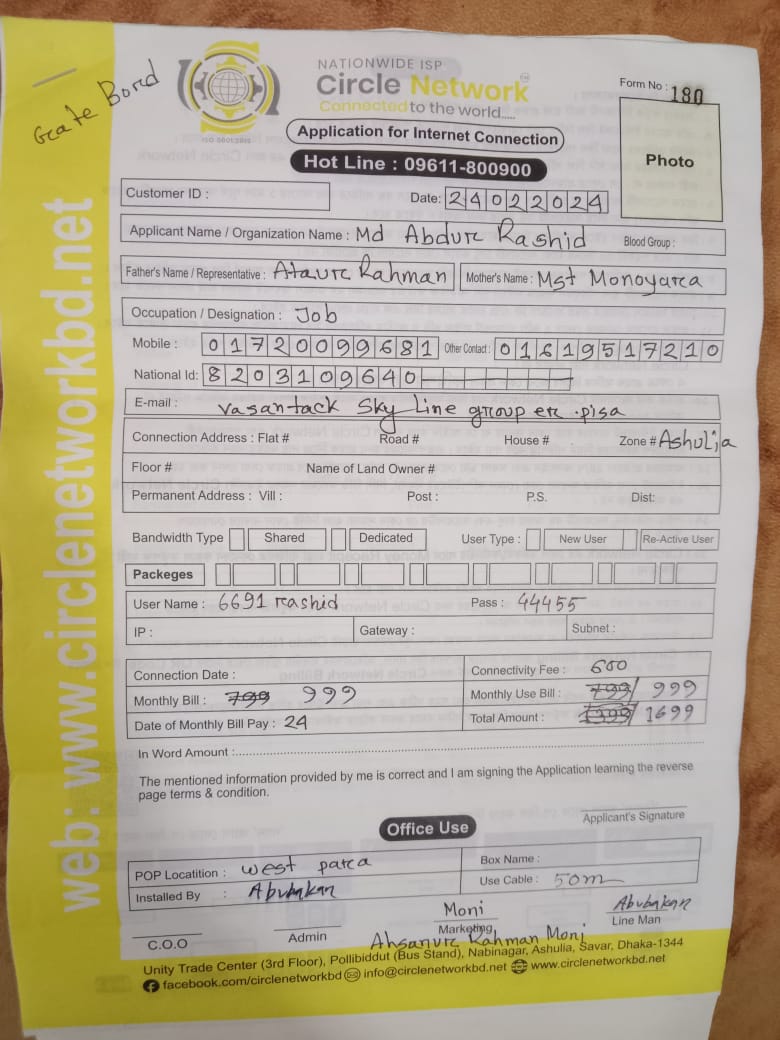 Gcate Bord
NATIONWIDE ISP
Circle Network
Connected to the world.....
ISO 9001:2015
Form No : 180
Application for Internet Connection
Hot Line : 09611-800900
Photo
Customer ID :
Date: 24022024
Applicant Name / Organization Name : Md Abdur Rashid Blood Group :
Father's Name / Representative : Ataur Rahman Mother's Name : Mst Monoyara
Occupation / Designation : Job
Mobile : 01720099681 Other Contact : 01619517210
National Id: 8203109640
E-mail : vasantack Sky Line group etc . pisa
Connection Address : Flat # Road # House # Zone # Ashulia
Floor # Name of Land Owner #
Permanent Address : Vill : Post : P.S. Dist:
Bandwidth Type Shared Dedicated User Type : New User Re-Active User
Packeges
User Name : 6691 rashid Pass : 44455
IP : Gateway : Subnet :
Connection Date : Connectivity Fee : 600
Monthly Bill : 799 999 Monthly Use Bill : 799/ 999
Date of Monthly Bill Pay : 24 Total Amount : 1399/ 1699
In Word Amount :
The mentioned information provided by me is correct and I am signing the Application learning the reverse
page terms & condition.
Applicant's Signature
Office Use
POP Locatition : west para Box Name :
Installed By : Abubakar Use Cable : 50m
Moni Abubakar
C.O.O Admin Marketing Line Man
Ahsanur Rahman Moni
Unity Trade Center (3rd Floor), Pollibiddut (Bus Stand), Nabinagar, Ashulia, Savar, Dhaka-1344
facebook.com/circlenetworkbd info@circlenetworkbd.net www.circlenetworkbd.net
web: www.circlenetworkbd.net